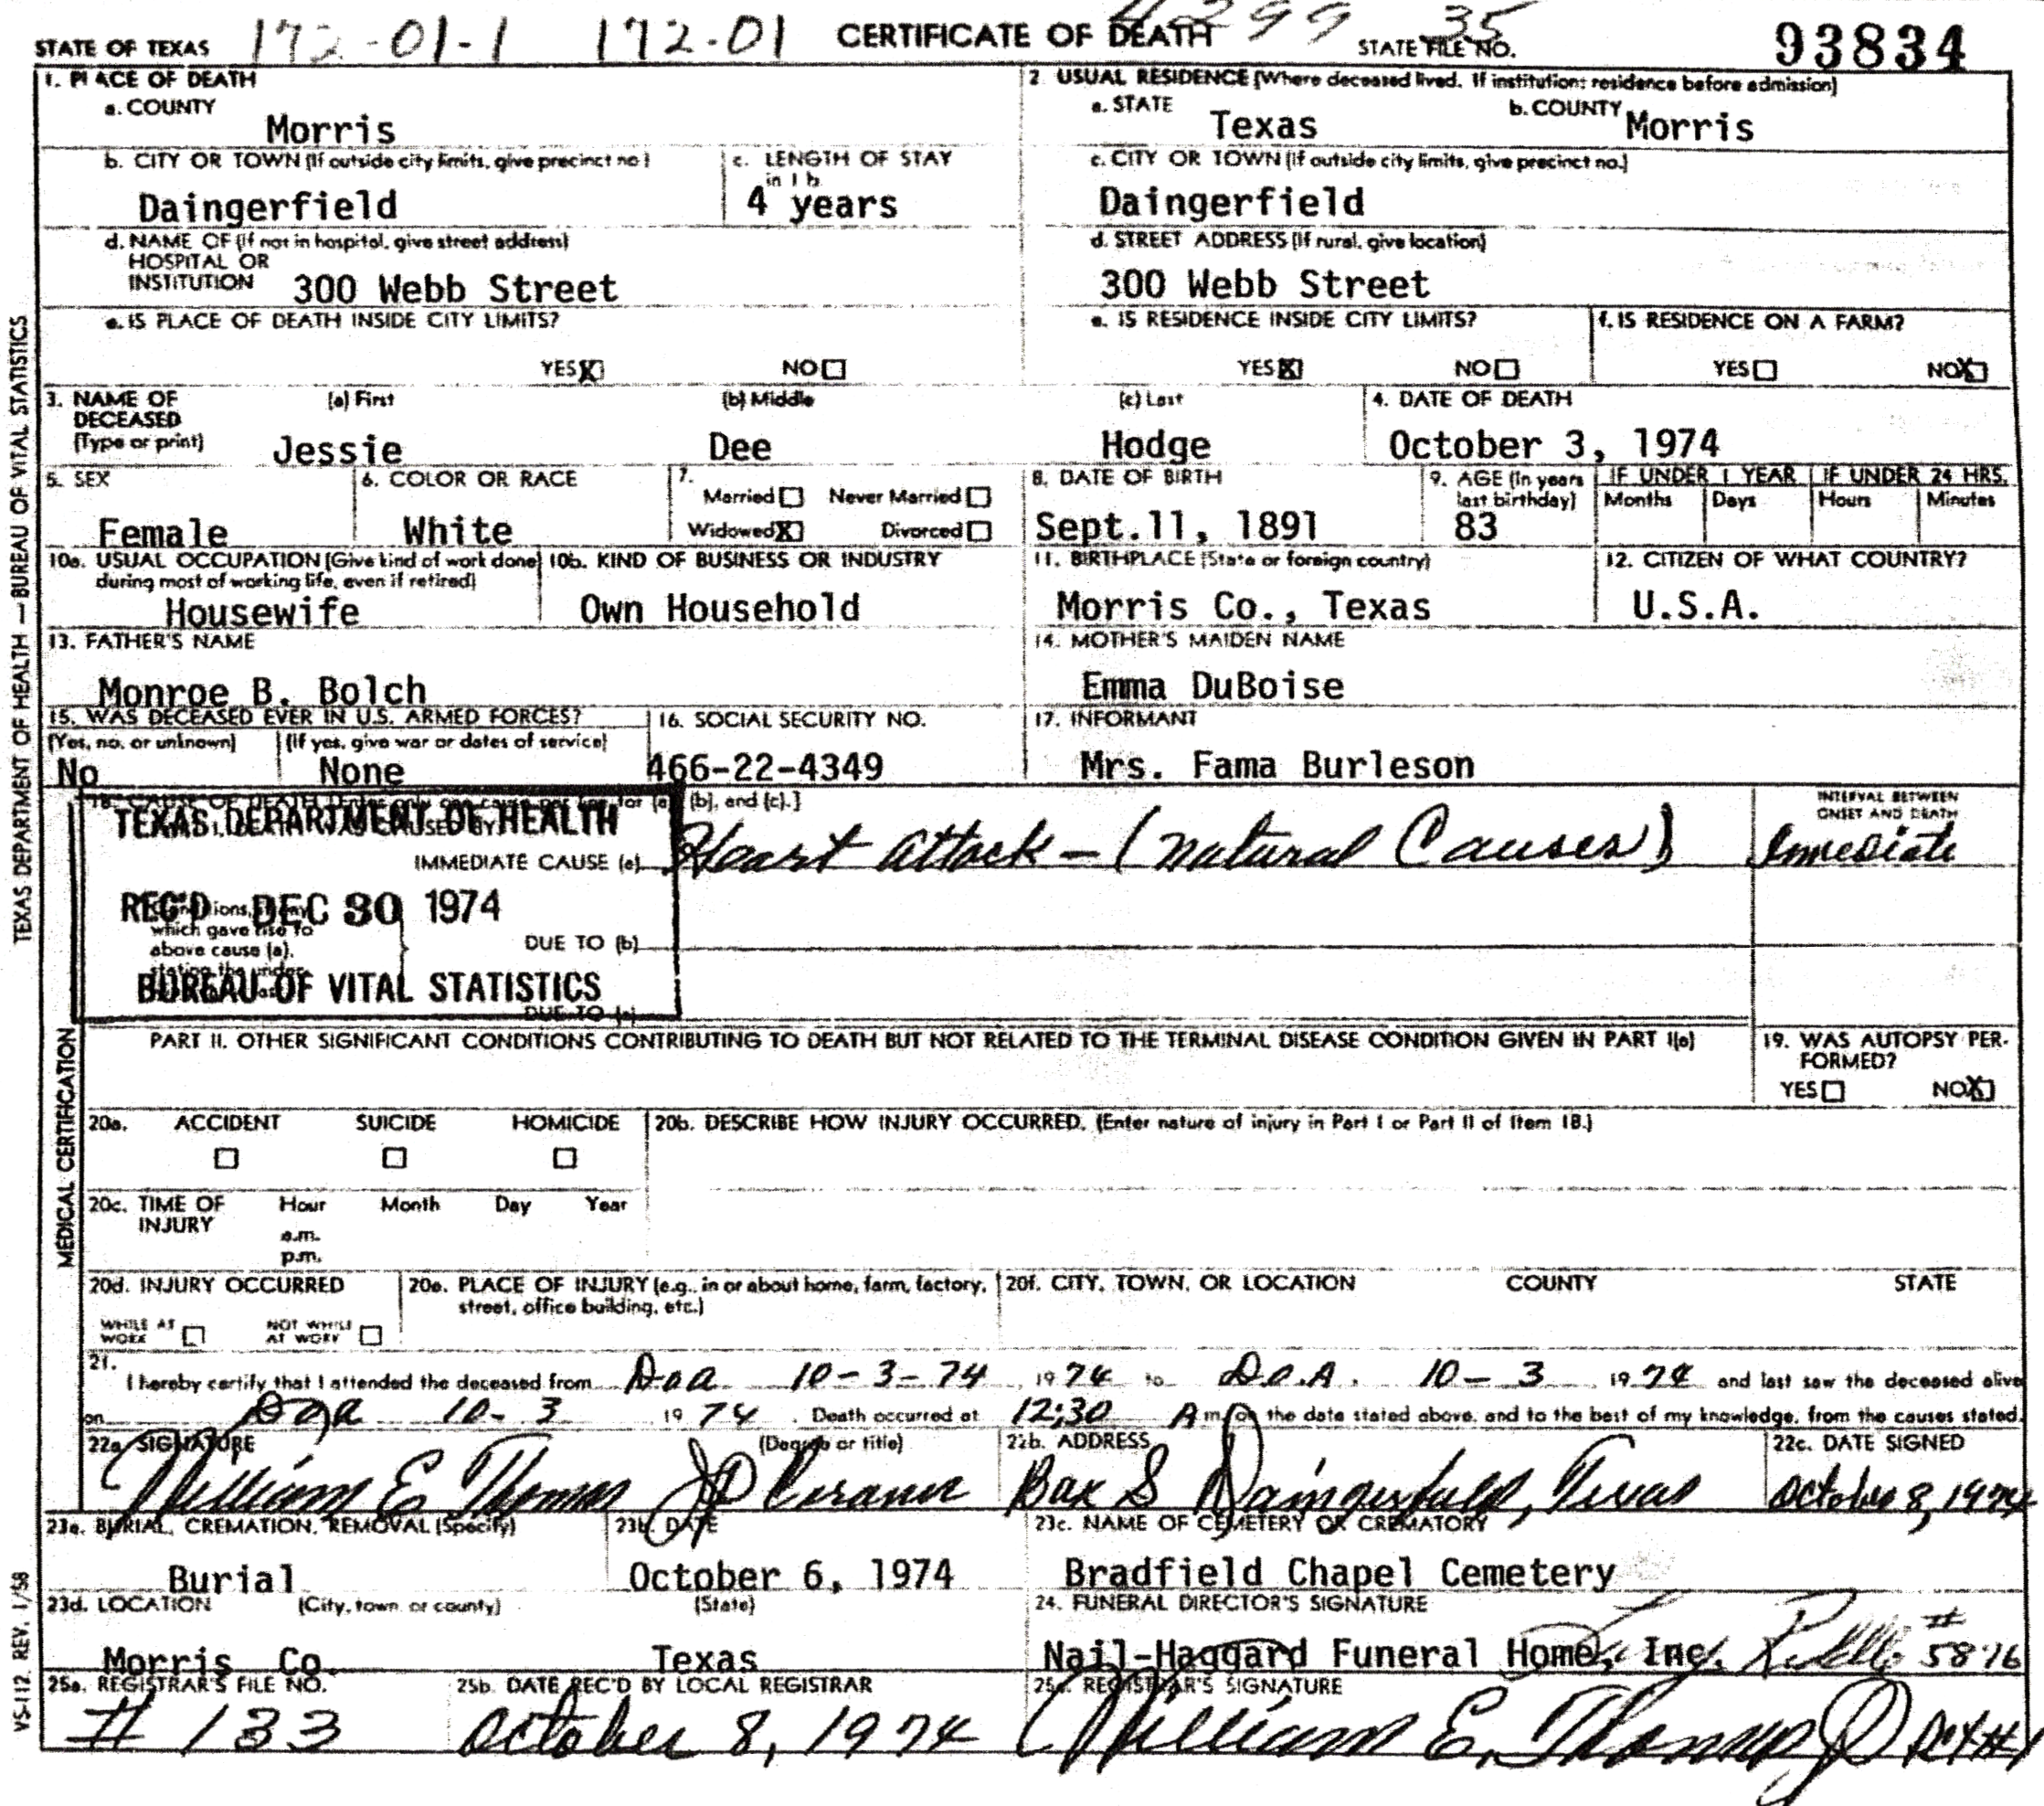 172-01-1 172-01 4299 35
STATE OF TEXAS CERTIFICATE OF DEATH STATE FILE NO. 93834
1. PLACE OF DEATH
a. COUNTY
Morris
2. USUAL RESIDENCE (Where deceased lived. If institution: residence before admission)
a. STATE Texas b. COUNTY Morris
b. CITY OR TOWN (If outside city limits, give precinct no)
Daingerfield
c. LENGTH OF STAY
in 1 b
4 years
c. CITY OR TOWN (If outside city limits, give precinct no.)
Daingerfield
d. NAME OF (If not in hospital, give street address)
HOSPITAL OR
INSTITUTION 300 Webb Street
d. STREET ADDRESS (If rural, give location)
300 Webb Street
e. IS PLACE OF DEATH INSIDE CITY LIMITS?
YES X NO
e. IS RESIDENCE INSIDE CITY LIMITS?
YES X NO
f. IS RESIDENCE ON A FARM?
YES NO X
3. NAME OF (a) First (b) Middle (c) Last
DECEASED
(Type or print) Jessie Dee Hodge
4. DATE OF DEATH
October 3, 1974
5. SEX
Female
6. COLOR OR RACE
White
7.
Married Never Married
Widowed X Divorced
8. DATE OF BIRTH
Sept.11, 1891
9. AGE (In years
last birthday)
83
IF UNDER 1 YEAR IF UNDER 24 HRS.
Months Days Hours Minutes
10a. USUAL OCCUPATION (Give kind of work done
during most of working life, even if retired)
Housewife
10b. KIND OF BUSINESS OR INDUSTRY
Own Household
11. BIRTHPLACE (State or foreign country)
Morris Co., Texas
12. CITIZEN OF WHAT COUNTRY?
U.S.A.
13. FATHER'S NAME
Monroe B. Bolch
14. MOTHER'S MAIDEN NAME
Emma DuBoise
15. WAS DECEASED EVER IN U.S. ARMED FORCES?
(Yes, no, or unknown) (If yes, give war or dates of service)
No None
16. SOCIAL SECURITY NO.
466-22-4349
17. INFORMANT
Mrs. Fama Burleson
18. CAUSE OF DEATH [Enter only one cause per line for (a) (b), and (c).]
TEXAS DEPARTMENT OF HEALTH
IMMEDIATE CAUSE (a) Heart attack - (natural Causes)
INTERVAL BETWEEN
ONSET AND DEATH
Immediate
REC'D DEC 30 1974
which gave rise to
above cause (a),
stating the under-
DUE TO (b)
BUREAU OF VITAL STATISTICS
DUE TO (c)
PART II. OTHER SIGNIFICANT CONDITIONS CONTRIBUTING TO DEATH BUT NOT RELATED TO THE TERMINAL DISEASE CONDITION GIVEN IN PART I(a)
19. WAS AUTOPSY PER-
FORMED?
YES NO X
20a. ACCIDENT SUICIDE HOMICIDE
20b. DESCRIBE HOW INJURY OCCURRED. (Enter nature of injury in Part I or Part II of Item 18.)
20c. TIME OF Hour Month Day Year
INJURY
a.m.
p.m.
20d. INJURY OCCURRED
WHILE AT
WORK
NOT WHILE
AT WORK
20e. PLACE OF INJURY (e.g., in or about home, farm, factory,
street, office building, etc.)
20f. CITY, TOWN, OR LOCATION COUNTY STATE
21.
I hereby certify that I attended the deceased from Doa 10-3-74, 1974 to D.O.A. 10-3 1974 and last saw the deceased alive
on Doa 10-3 1974. Death occurred at 12:30 A m. on the date stated above, and to the best of my knowledge, from the causes stated.
22a. SIGNATURE (Degree or title)
William E Thomas JP Coroner
22b. ADDRESS
Box S Daingerfield, Texas
22c. DATE SIGNED
October 8, 1974
23a. BURIAL, CREMATION, REMOVAL (Specify)
Burial
23b. DATE
October 6, 1974
23c. NAME OF CEMETERY OR CREMATORY
Bradfield Chapel Cemetery
23d. LOCATION (City, town, or county) (State)
Morris Co. Texas
24. FUNERAL DIRECTOR'S SIGNATURE
Nail-Haggard Funeral Home, Inc. # 5876
25a. REGISTRAR'S FILE NO.
# 133
25b. DATE REC'D BY LOCAL REGISTRAR
October 8, 1974
25c. REGISTRAR'S SIGNATURE
William E. Thomas JP Pct #1
TEXAS DEPARTMENT OF HEALTH — BUREAU OF VITAL STATISTICS
MEDICAL CERTIFICATION
VS-112 REV. 1/58